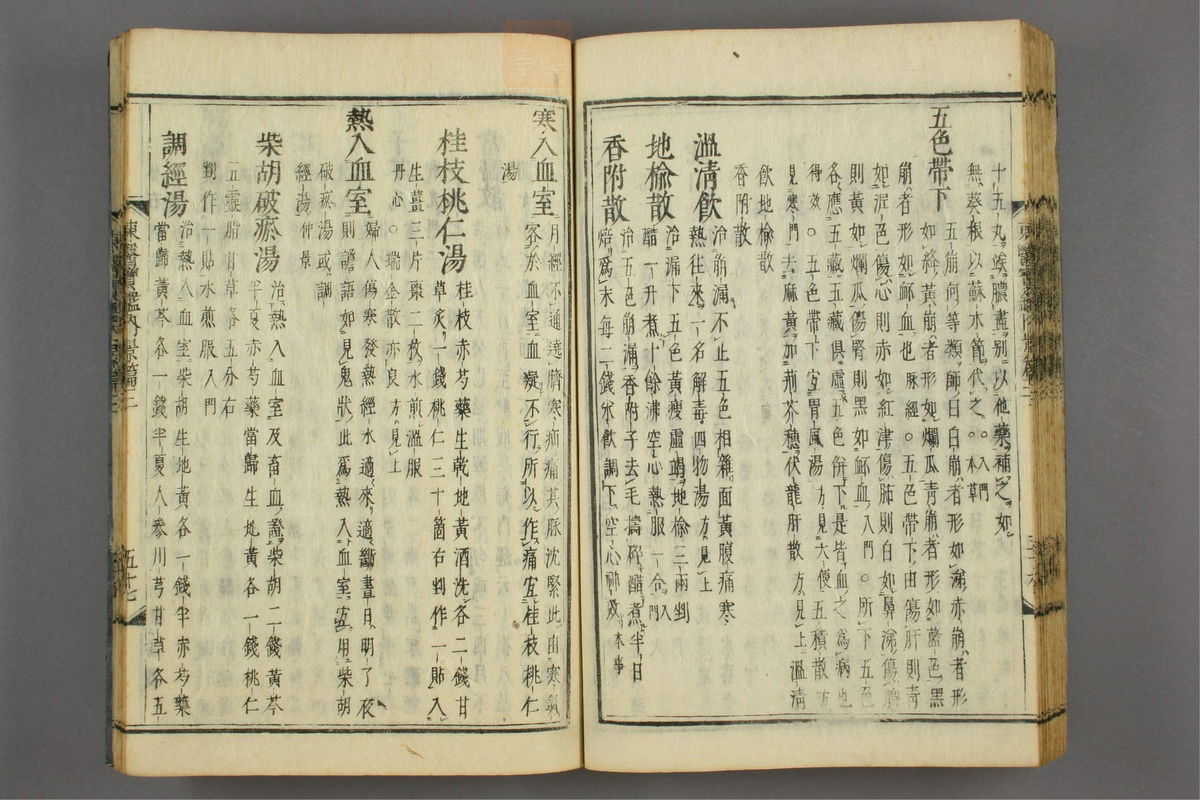 十五丸候膿盡別以他藥補之如
無葵根以蘇水節代之○入門○本草
五色帶下
五崩何等類師曰白崩者形如涕赤崩者形
如絳黃崩者形如爛瓜青崩者形如藍色黑
崩者形如衃血也脉經○五色帶下由傷肝則青
如泥色傷心則赤如紅津傷肺則白如鼻涕傷脾
則黃如爛瓜傷腎則黑如衃血入門○所下五色
各應五藏五藏俱虛五色倂下是皆血之爲病也
得效○五色帶下宜胃風湯方見大便五積散方
見寒門去麻黃加荊芥穗伏龍肝散方見上溫清
飲地楡散
香附散
溫清飲
治崩漏不止五色相雜面黃腹痛寒
熱往來一名解毒四物湯方見上
地楡散
治漏下五色黃瘦虛竭地楡三兩剉
醋一升煮十餘沸空心熱服一合入門
香附散
治五色崩漏香附子去毛擣碎醋煮半日
焙爲末每二錢米飮調下空心 本事
寒入血室
月經不通遶臍寒疝痛其脉沈緊此由寒氣
客於血室血凝不行所以作痛宜桂枝桃仁
湯
桂枝桃仁湯
桂枝赤芍藥生乾地黃酒洗各二錢甘
草炙一錢桃仁三十箇右剉作一貼入
生薑三片棗二枚水煎溫服
丹心○瑞金散亦良方見上
熱入血室
婦人傷寒發熱經水適來適斷晝日明了夜
則譫語如見鬼狀此爲熱入血室宜用柴胡
破瘀湯或調
經湯仲景
柴胡破瘀湯
治熱入血室及畜血證柴胡二錢黃芩
半夏赤芍藥當歸生地黃各一錢桃仁
五靈脂甘草各五分右
剉作一貼水煎服入門
調經湯
治熱入血室柴胡生地黃各一錢半赤芍藥
當歸黃芩各一錢半夏人參川芎甘草各五
東醫寶鑑內景篇二
五十七